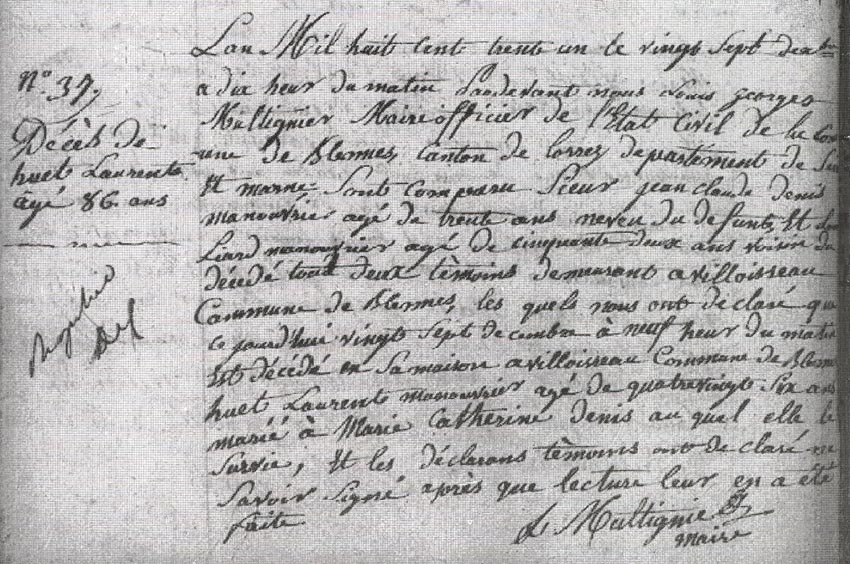 N.º 37,
Décès de
huet Laurents
agé 86 ans
Lan Mil huit Cent trente un le vingt Sept dexbre
a dix heur du matin Pardevant nous Louis georges
Multignier Maire officier de l'Etat Civil de la Com
une de Blennes, Canton de Lorrez departement de Sei
Et marne Sont Comparu Sieur jean Claude Denis
manouvrier agé de trente ans neveu du defunt, Et
Liard manouvrier agé de Cinquante deux ans voisin du
décédé tout deux tèmoins demeurant a villoisseau
Commune de Blennes, les quels nous ont declaré que
ce jourd'hui vingt Sept decembre à neuf heur du matin
Est décédé en Samaison a villoisseau Commune de Blenne
huet Laurents manouvrier agé de quatrevingt Six ans
marié à Marie Catherine Denis au quel elle le
Survie, Et les déclarans tèmoins ont de claré ne
Savoir Signé après que lecture leur en a été
faite
L Multignier
maire